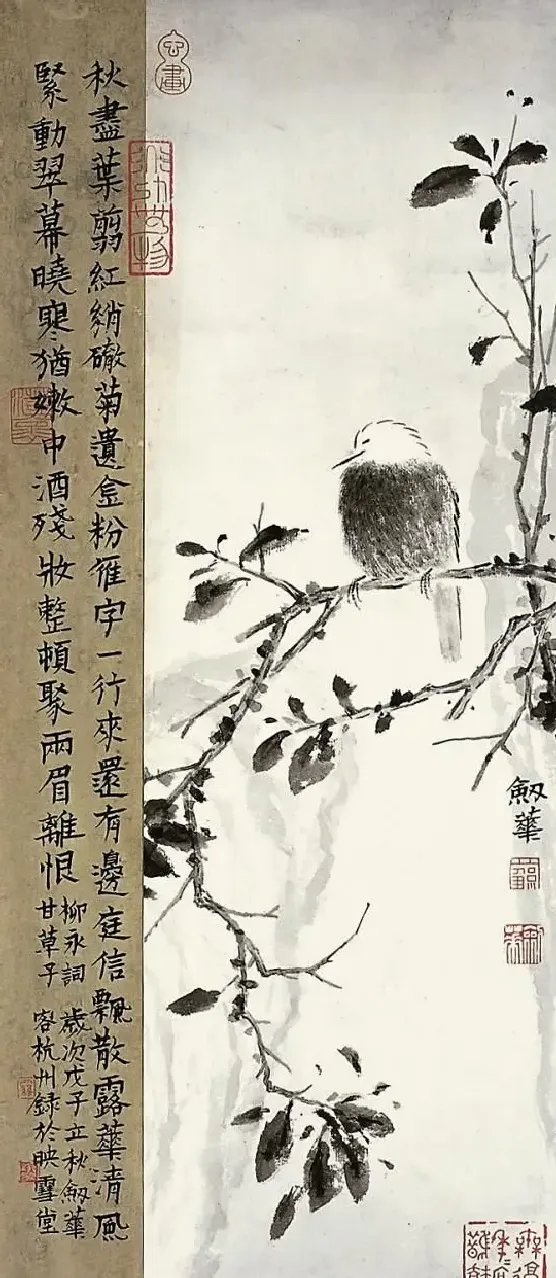 劔華
秋盡葉翦紅綃菊遺金粉雁字一行來還有邊庭信飄散露華清風
緊動翠幕曉寒猶嫩中酒殘妝整頓聚兩眉離恨
柳永詞
甘草子
歲次戊子立秋劔華
客杭州錄於映雪堂